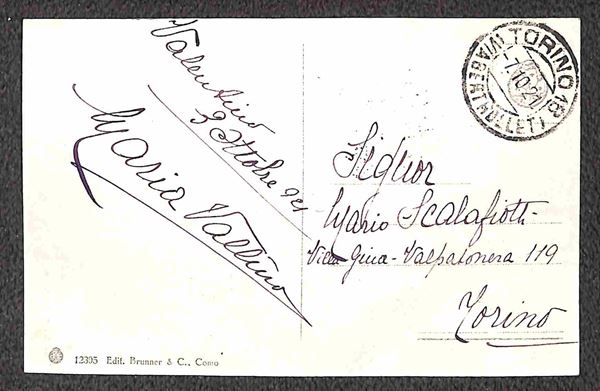 Valentino
3 Ottobre 921
Maria Vallino
TORINO 18
(VIA BERTHOLLET)
-7.10.21
Siglior
Mario Scalafiotti-
Villa Gina - Valpatonera 119
Torino
12395 Edit. Brunner & C., Como